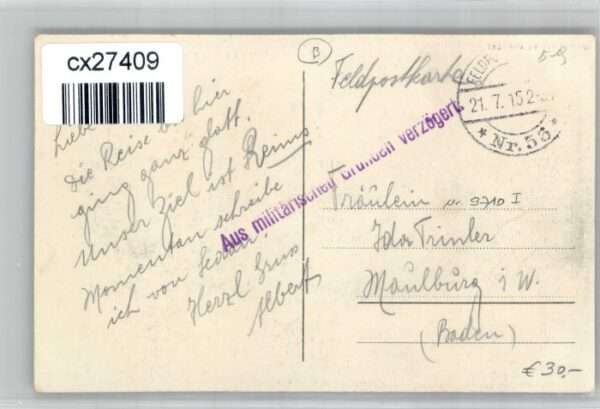 cx27409
B
Feldpostkarte
5-9
21.7.15 2-
* Nr. 53 *
Aus militärischen Gründen verzögert.
Liebe
die Reise bis hier
ging ganz glatt.
Unser Ziel ist Reims
Momentan schreibe
ich von Sedan.
Herzl. Gruss
Albert
Fräulein
nr. 9710 I
Ida Trimler
Maulburg i W.
(Baden)
€ 30,-